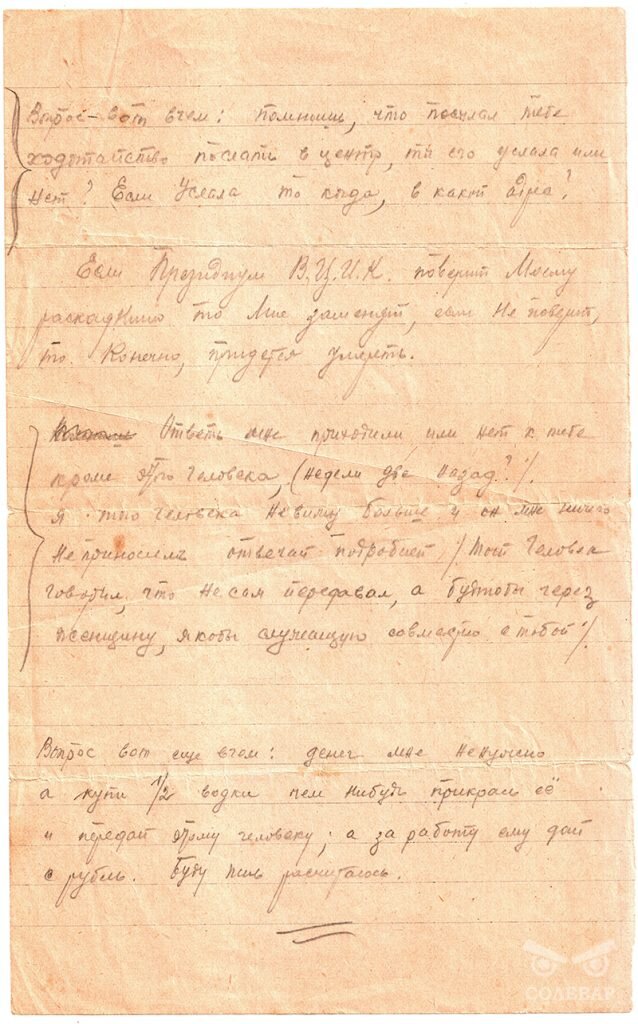 Вопрос – вот в чем: помнишь, что посылал тебе
ходотайство послать в центр, ты его услала или
нет? Если Услала то когда, в какой адре?
Если Президиум В.Ц.И.К. поверит Моему
то Мне заменят, если Не поверит,
то Конечно, придется умереть.
Ответь мне приходили, или нет к тебе
кроме этого человека, (недели две назад?/.
я того человека Невижу больше и он мне ничего
Неприносилъ отвечай подробней / Тот Человек
говорил, что Не сам передавал, а будтобы через
женщину, якобы служащую совместно с тобой /.
Вопрос вот еще вчем: денег мне Ненужно
а купи 1/2 водки чем нибудь прикрась её
и передай этому человеку; а за работу ему дай
с рубль. Буду жив расчитаюсь.
СОЛЕВАР